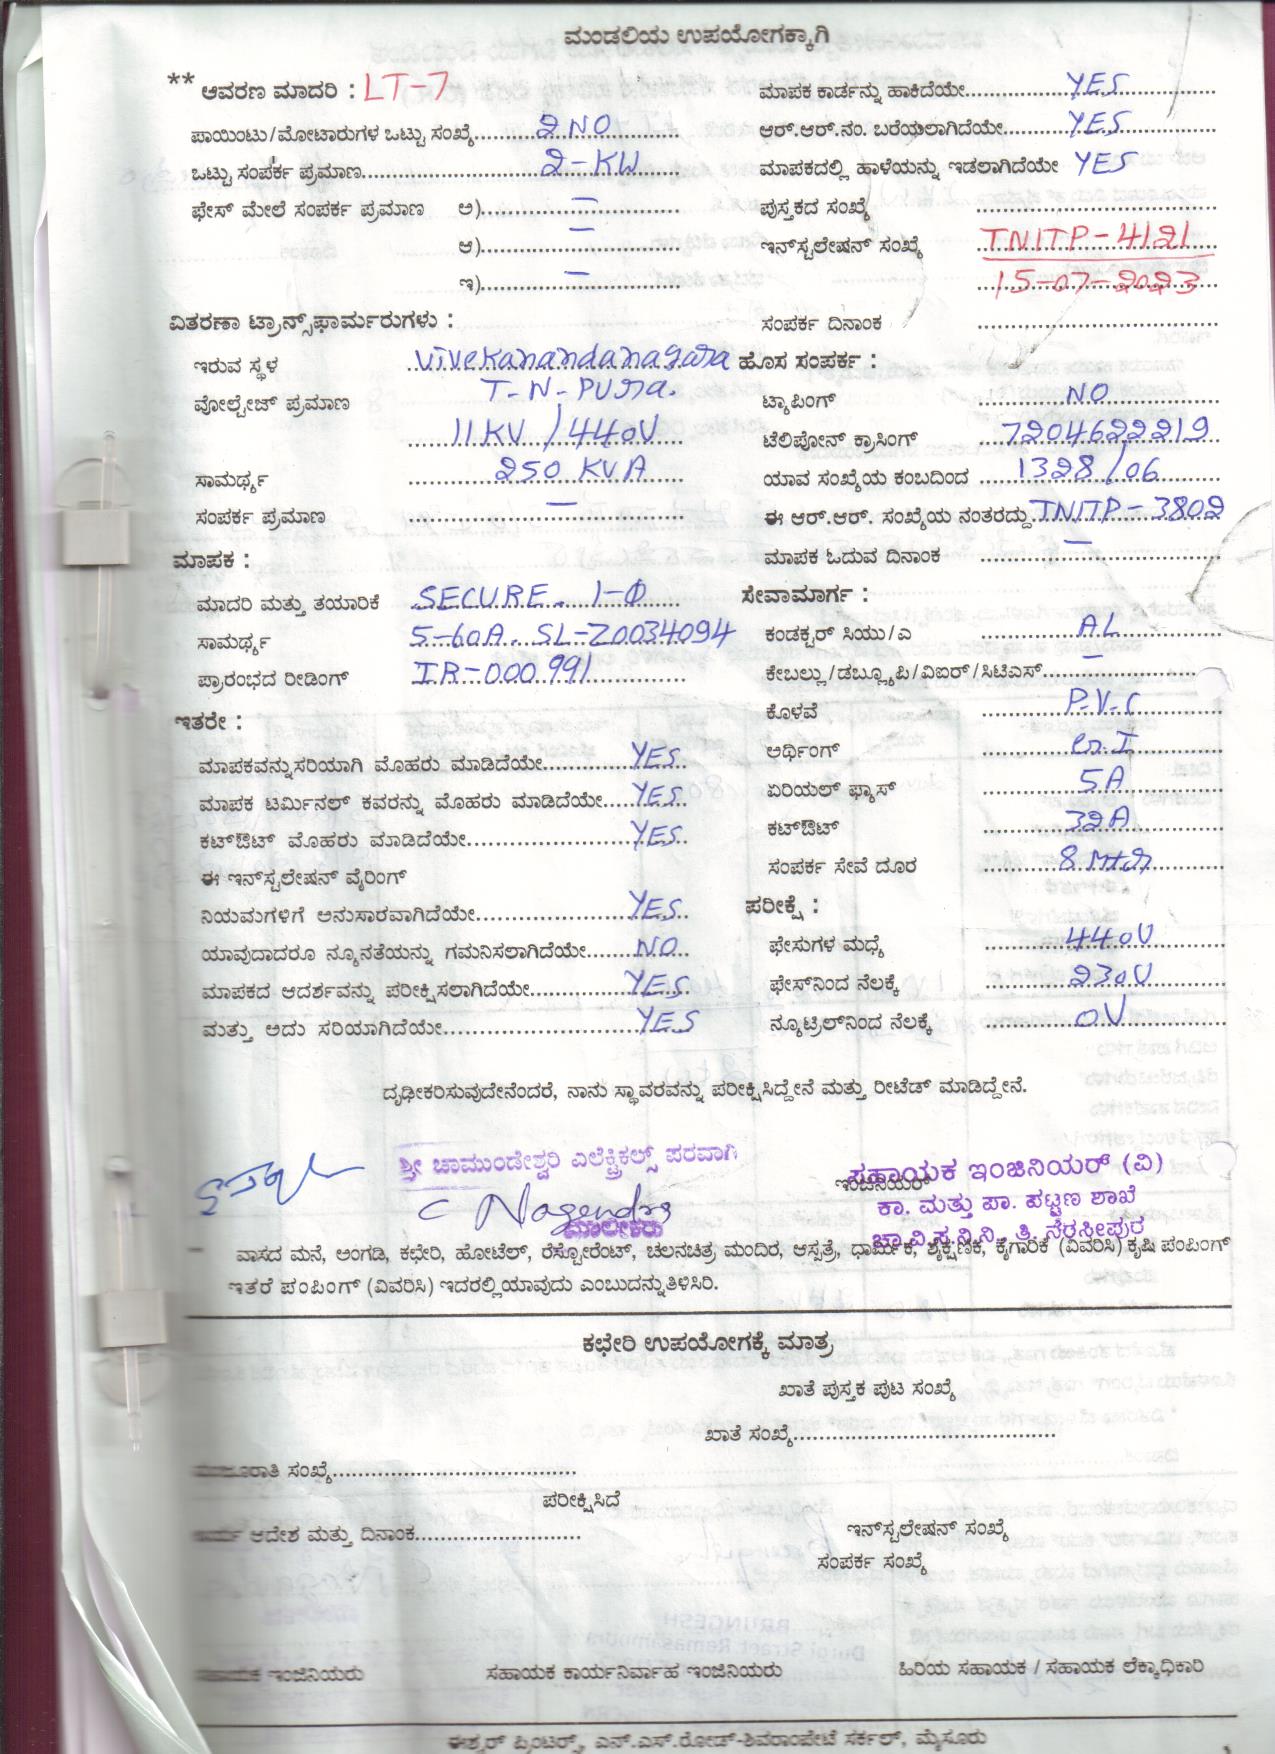 ಮಂಡಲಿಯ ಉಪಯೋಗಕ್ಕಾಗಿ
** ಆವರಣ ಮಾದರಿ : LT-7
ಪಾಯಿಂಟು/ಮೋಟಾರುಗಳ ಒಟ್ಟು ಸಂಖ್ಯೆ........ 2 NO
ಒಟ್ಟು ಸಂಪರ್ಕ ಪ್ರಮಾಣ........ 2-KW
ಫೇಸ್ ಮೇಲೆ ಸಂಪರ್ಕ ಪ್ರಮಾಣ ಅ)........ —
ಆ)........ —
ಇ)........ —
ವಿತರಣಾ ಟ್ರಾನ್ಸ್‌ಫಾರ್ಮರುಗಳು :
ಇರುವ ಸ್ಥಳ Vivekanandanagara
T-N-PUra.
ವೋಲ್ಟೇಜ್ ಪ್ರಮಾಣ
11KV / 440V
ಸಾಮರ್ಥ್ಯ 250 KVA
ಸಂಪರ್ಕ ಪ್ರಮಾಣ —
ಮಾಪಕ :
ಮಾದರಿ ಮತ್ತು ತಯಾರಿಕೆ SECURE. 1-Φ
ಸಾಮರ್ಥ್ಯ 5-60A. SL-Z0034094
ಪ್ರಾರಂಭದ ರೀಡಿಂಗ್ IR-000991
ಇತರೇ :
ಮಾಪಕವನ್ನು ಸರಿಯಾಗಿ ಮೊಹರು ಮಾಡಿದೆಯೇ........ YES
ಮಾಪಕ ಟರ್ಮಿನಲ್ ಕವರನ್ನು ಮೊಹರು ಮಾಡಿದೆಯೇ........ YES
ಕಟ್‌ಔಟ್ ಮೊಹರು ಮಾಡಿದೆಯೇ........ YES
ಈ ಇನ್‌ಸ್ಟಲೇಷನ್ ವೈರಿಂಗ್
ನಿಯಮಗಳಿಗೆ ಅನುಸಾರವಾಗಿದೆಯೇ........ YES
ಯಾವುದಾದರೂ ನ್ಯೂನತೆಯನ್ನು ಗಮನಿಸಲಾಗಿದೆಯೇ........ NO
ಮಾಪಕದ ಆದರ್ಶವನ್ನು ಪರೀಕ್ಷಿಸಲಾಗಿದೆಯೇ........ YES
ಮತ್ತು ಅದು ಸರಿಯಾಗಿದೆಯೇ........ YES
ಮಾಪಕ ಕಾರ್ಡನ್ನು ಹಾಕಿದೆಯೇ........ YES
ಆರ್.ಆರ್.ನಂ. ಬರೆಯಲಾಗಿದೆಯೇ........ YES
ಮಾಪಕದಲ್ಲಿ ಹಾಳೆಯನ್ನು ಇಡಲಾಗಿದೆಯೇ YES
ಪುಸ್ತಕದ ಸಂಖ್ಯೆ ........
ಇನ್‌ಸ್ಟಲೇಷನ್ ಸಂಖ್ಯೆ TNITP-4121
15-07-2023
ಸಂಪರ್ಕ ದಿನಾಂಕ ........
ಹೊಸ ಸಂಪರ್ಕ :
ಟ್ಯಾಪಿಂಗ್ NO
ಟೆಲಿಪೋನ್ ಕ್ರಾಸಿಂಗ್ 7204622219
ಯಾವ ಸಂಖ್ಯೆಯ ಕಂಬದಿಂದ 1328/06
ಈ ಆರ್.ಆರ್. ಸಂಖ್ಯೆಯ ನಂತರದ್ದು TNITP-3802
ಮಾಪಕ ಓದುವ ದಿನಾಂಕ —
ಸೇವಾಮಾರ್ಗ :
ಕಂಡಕ್ಟರ್ ಸಿಯು/ಎ AL
ಕೇಬಲ್ಲು/ಡಬ್ಲ್ಯೂಪಿ/ವಿಐಆರ್/ಸಿಟಿಎಸ್........ —
ಕೊಳವೆ P.V.C
ಅರ್ಥಿಂಗ್ G.I
ಏರಿಯಲ್ ಫ್ಯೂಸ್ 5A
ಕಟ್‌ಔಟ್ 32A
ಸಂಪರ್ಕ ಸೇವೆ ದೂರ 8 Mtr
ಪರೀಕ್ಷೆ :
ಫೇಸುಗಳ ಮಧ್ಯೆ 440V
ಫೇಸ್‌ನಿಂದ ನೆಲಕ್ಕೆ 230V
ನ್ಯೂಟ್ರಲ್‌ನಿಂದ ನೆಲಕ್ಕೆ 0V
ದೃಢೀಕರಿಸುವುದೇನೆಂದರೆ, ನಾನು ಸ್ಥಾವರವನ್ನು ಪರೀಕ್ಷಿಸಿದ್ದೇನೆ ಮತ್ತು ರೀಟೆಡ್ ಮಾಡಿದ್ದೇನೆ.
ಶ್ರೀ ಚಾಮುಂಡೇಶ್ವರಿ ಎಲೆಕ್ಟ್ರಿಕಲ್ಸ್ ಪರವಾಗಿ
C Nagendra
ಮಾಲೀಕರು
ಇಂಜಿನಿಯರ್
ಸಹಾಯಕ ಇಂಜಿನಿಯರ್ (ವಿ)
ಕಾ. ಮತ್ತು ಪಾ. ಪಟ್ಟಣ ಶಾಖೆ
ಚಾ.ವಿ.ಸ.ನಿ.ನಿ., ತಿ. ನರಸೀಪುರ
ವಾಸದ ಮನೆ, ಅಂಗಡಿ, ಕಛೇರಿ, ಹೋಟೆಲ್, ರೆಸ್ಟೋರೆಂಟ್, ಚಲನಚಿತ್ರ ಮಂದಿರ, ಆಸ್ಪತ್ರೆ, ಧಾರ್ಮಿಕ, ಶೈಕ್ಷಣಿಕ, ಕೈಗಾರಿಕೆ (ವಿವರಿಸಿ) ಕೃಷಿ ಪಂಪಿಂಗ್
ಇತರೆ ಪಂಪಿಂಗ್ (ವಿವರಿಸಿ) ಇದರಲ್ಲಿಯಾವುದು ಎಂಬುದನ್ನುತಿಳಿಸಿರಿ.
ಕಛೇರಿ ಉಪಯೋಗಕ್ಕೆ ಮಾತ್ರ
ಖಾತೆ ಪುಸ್ತಕ ಪುಟ ಸಂಖ್ಯೆ
ಖಾತೆ ಸಂಖ್ಯೆ........
ಮಂಜೂರಾತಿ ಸಂಖ್ಯೆ........
ಪರೀಕ್ಷಿಸಿದೆ
ಕಾರ್ಯ ಆದೇಶ ಮತ್ತು ದಿನಾಂಕ........
ಇನ್‌ಸ್ಟಲೇಷನ್ ಸಂಖ್ಯೆ
ಸಂಪರ್ಕ ಸಂಖ್ಯೆ
ಸಹಾಯಕ ಇಂಜಿನಿಯರು ಸಹಾಯಕ ಕಾರ್ಯನಿರ್ವಾಹ ಇಂಜಿನಿಯರು ಹಿರಿಯ ಸಹಾಯಕ / ಸಹಾಯಕ ಲೆಕ್ಕಾಧಿಕಾರಿ
ಈಶ್ವರ್ ಪ್ರಿಂಟರ್ಸ್, ಎನ್.ಎಸ್.ರೋಡ್-ಶಿವರಾಂಪೇಟೆ ಸರ್ಕಲ್, ಮೈಸೂರು